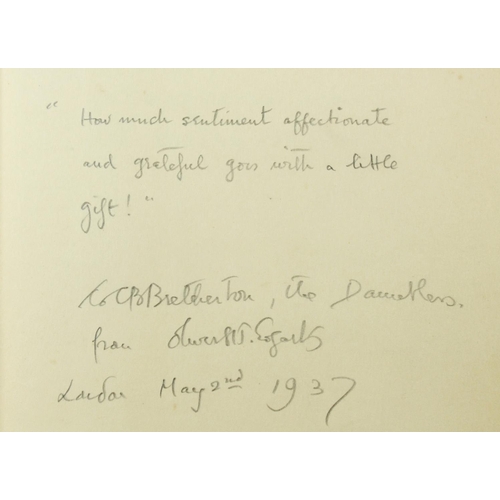 "How much sentiment affectionate
and grateful goes with a little
gift!"
to CB Bretherton, the Dauntless.
from Oliver W.
London May 2nd 1937